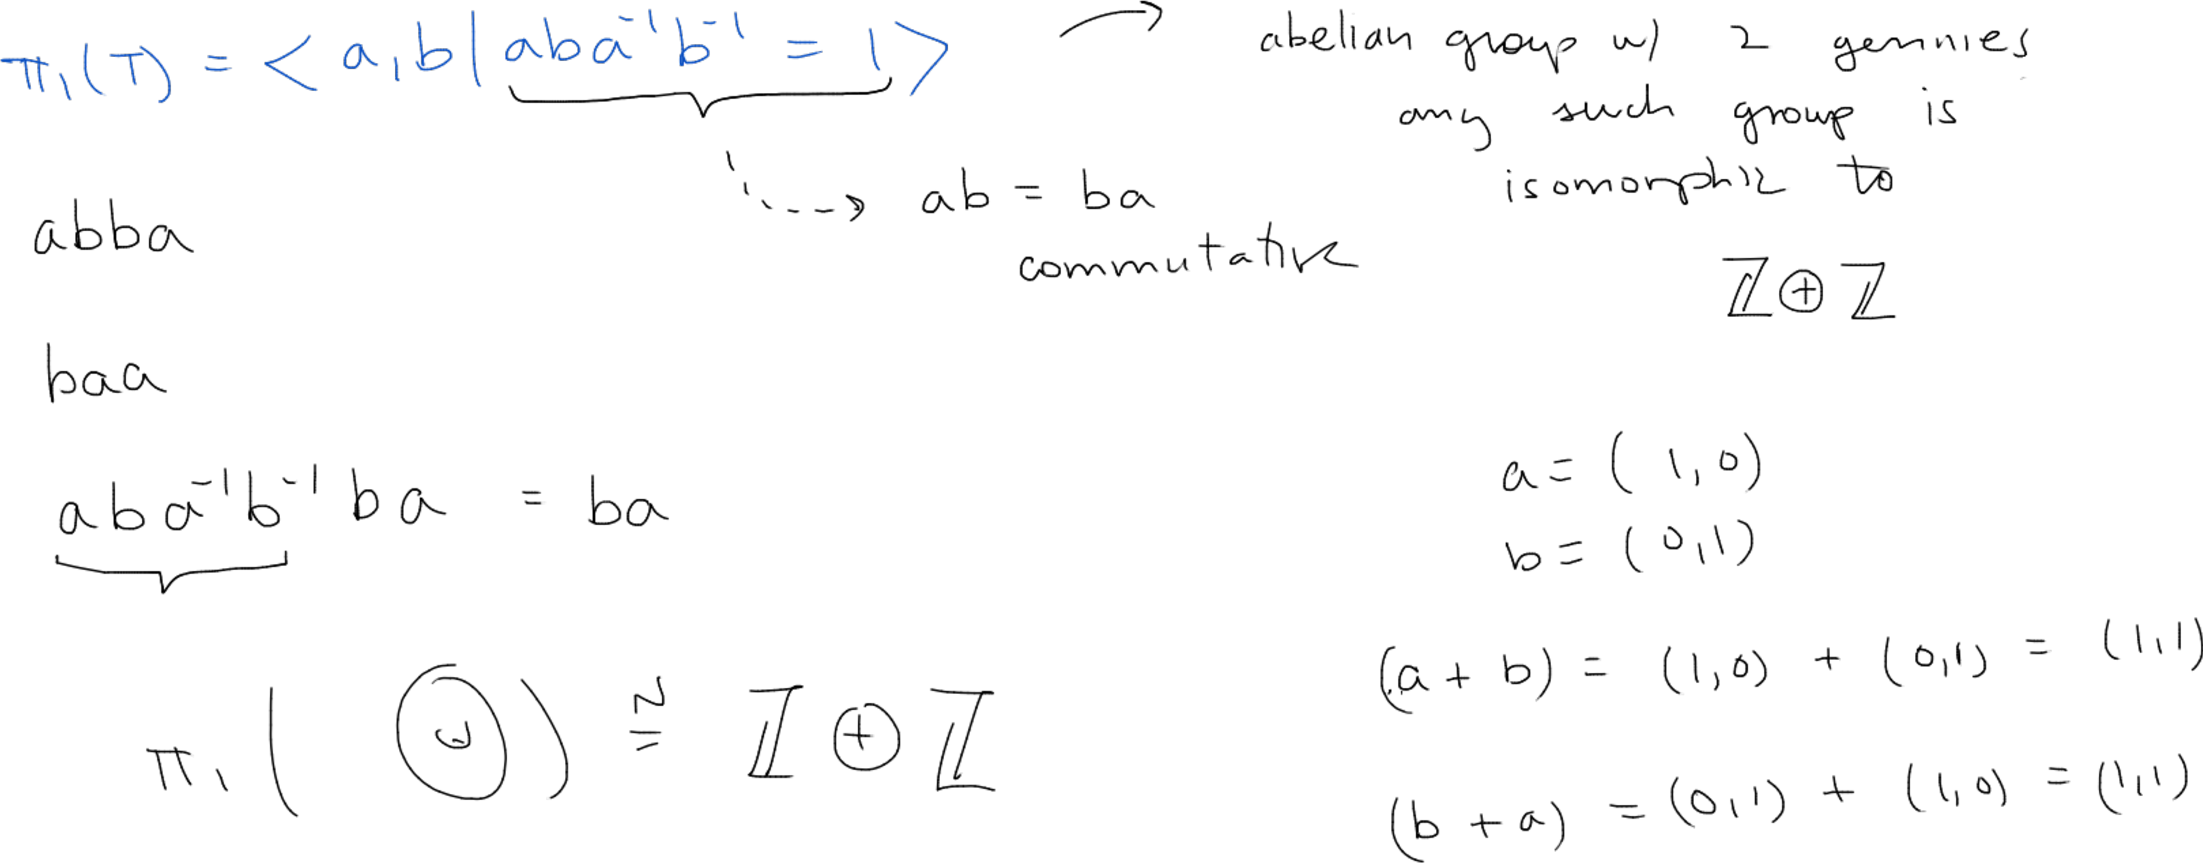 π₁(T) = < a, b | aba⁻¹b⁻¹ = 1 >
abelian group w/ 2 gennies
any such group is
isomorphic to
ℤ⊕ℤ
ab = ba
commutative
abba
baa
aba⁻¹b⁻¹ba = ba
a = (1,0)
b = (0,1)
(a + b) = (1,0) + (0,1) = (1,1)
(b + a) = (0,1) + (1,0) = (1,1)
π₁( ) ≅ ℤ ⊕ ℤ